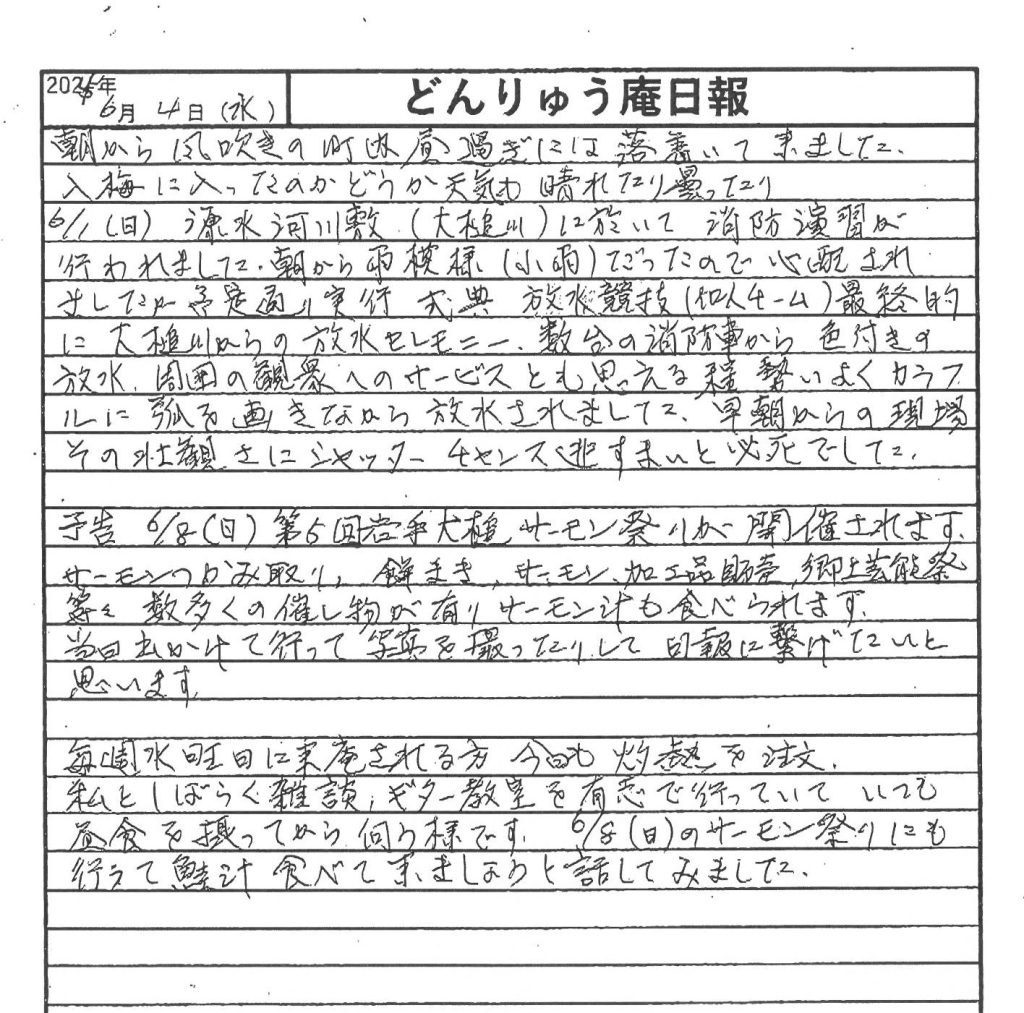 2025年
6月 4日(水)
どんりゅう庵日報
朝から風吹きの町内昼過ぎには落着いて来ました.
入梅に入ったのかどうか天気も晴れたり曇ったり
6/1(日) 源水河川敷(大槌川)に於いて 消防演習が
行われました.朝から雨模様(小雨)だったので心配され
ましたが予定通り実行 式典 放水競技( チーム)最終的
に大槌川からの放水セレモニー.数台の消防車から色付きの
放水.周囲の観衆へのサービスとも思える程勢いよくカラフ
ルに弧を画きながら放水されました.早朝からの現場
その壮観さにシャッターチャンスを逃すまいと必死でした.
予告 6/8(日)第5回岩手大槌サーモン祭りが開催されます.
サーモンつかみ取り,餅まき,サーモン,加工品販売,郷土芸能祭
等々数多くの催し物が有りサーモン汁も食べられます.
当日出かけて行って写真を撮ったりして日報に繋げたいと
思います.
毎週水曜日に来庵される方 今日も灼熱を注文.
私としばらく雑談,ギター教室を有志で行っていていつも
昼食を摂ってから伺う様です. 6/8(日)のサーモン祭りにも
行って鮭汁食べて来ましょうと話してみました.